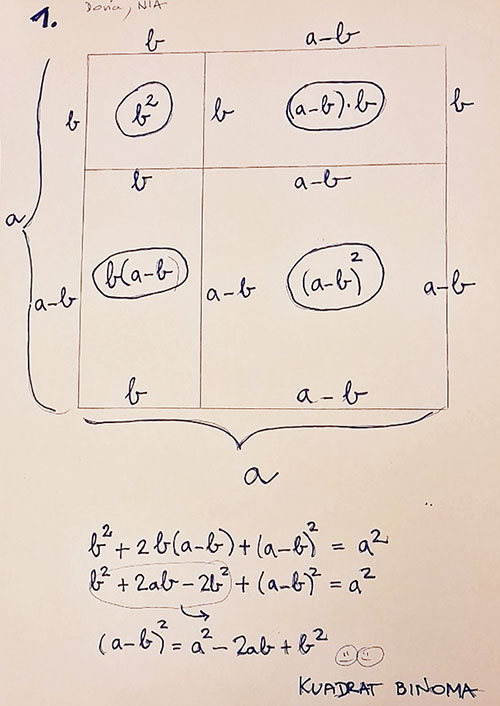 1. Doria, NIA
b a-b
b b² b (a-b)·b b
b a-b
a
b(a-b) (a-b)²
a-b a-b a-b
b a-b
a
b² + 2b(a-b) + (a-b)² = a²
b² + 2ab - 2b² + (a-b)² = a²
(a-b)² = a² - 2ab + b²
KVADRAT BINOMA